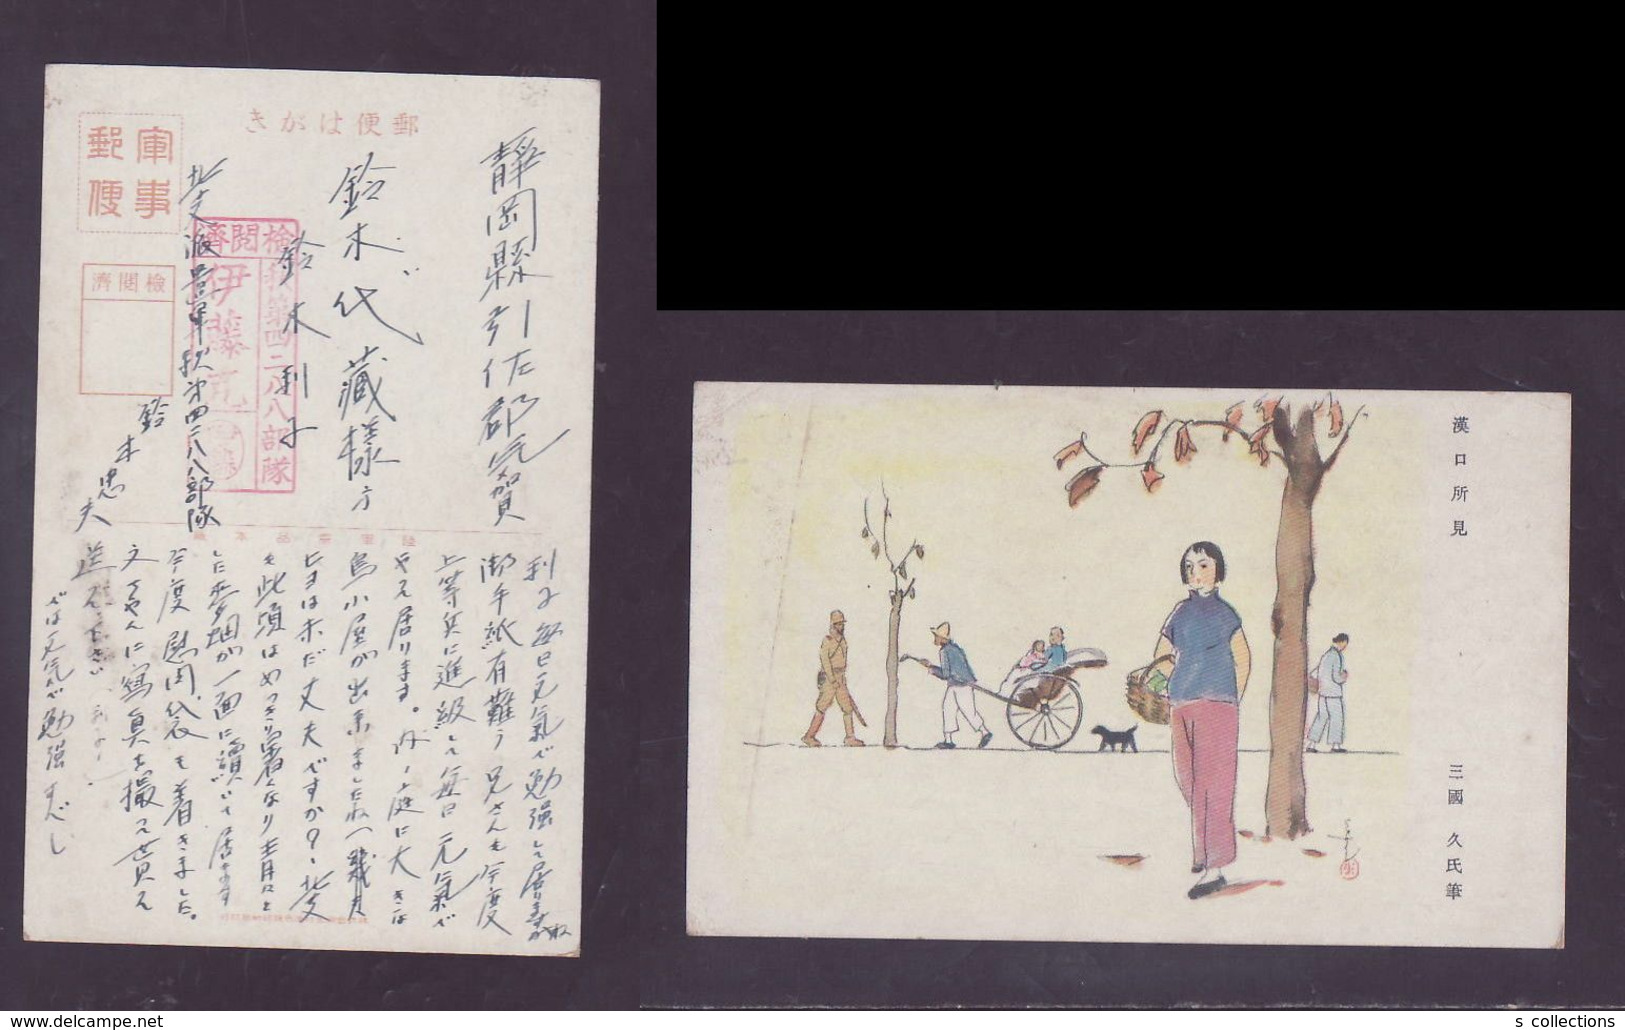 郵便はがき
軍事郵便
檢閲濟
靜岡縣引佐郡気賀
鈴木代藏様方
鈴木利子
檢閲濟
第四二八八部隊
伊藤
北支派遣軍 第四二八八部隊
鈴木忠夫
利子毎日元気で勉強して居りますかね
御手紙有難う兄さんも今度
上等兵に進級して毎日元気で
やって居ります。
鳥小屋が出来ましたね
ヒヨは未だ丈夫ですか？北支
も此頃はめっきり暑くなり青々と
した麥畑が一面に續いて居ます
今度慰問袋も着きました。
文ちゃんに寫眞を撮って貰って
送って下さい
では元気で勉強すべし
漢口所見
三國 久氏筆
s collections